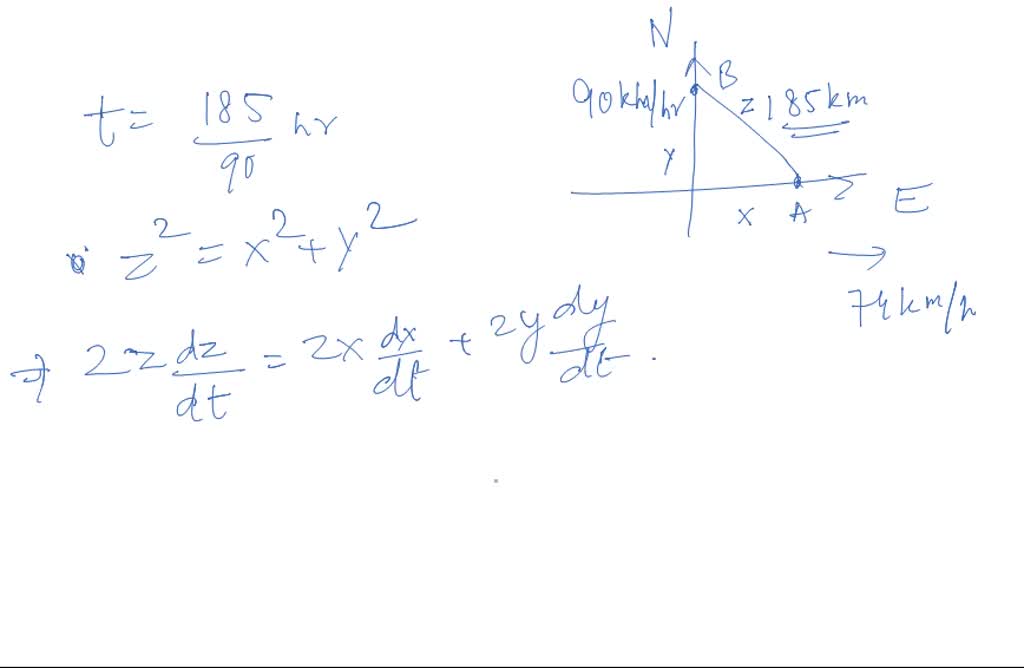 t = 185/90 hr
z² = x² + y²
⇒ 2z dz/dt = 2x dx/dt + 2y dy/dt .
N
B
90 km/hr
z 185 km
y
x
A
E
→
74 km/h